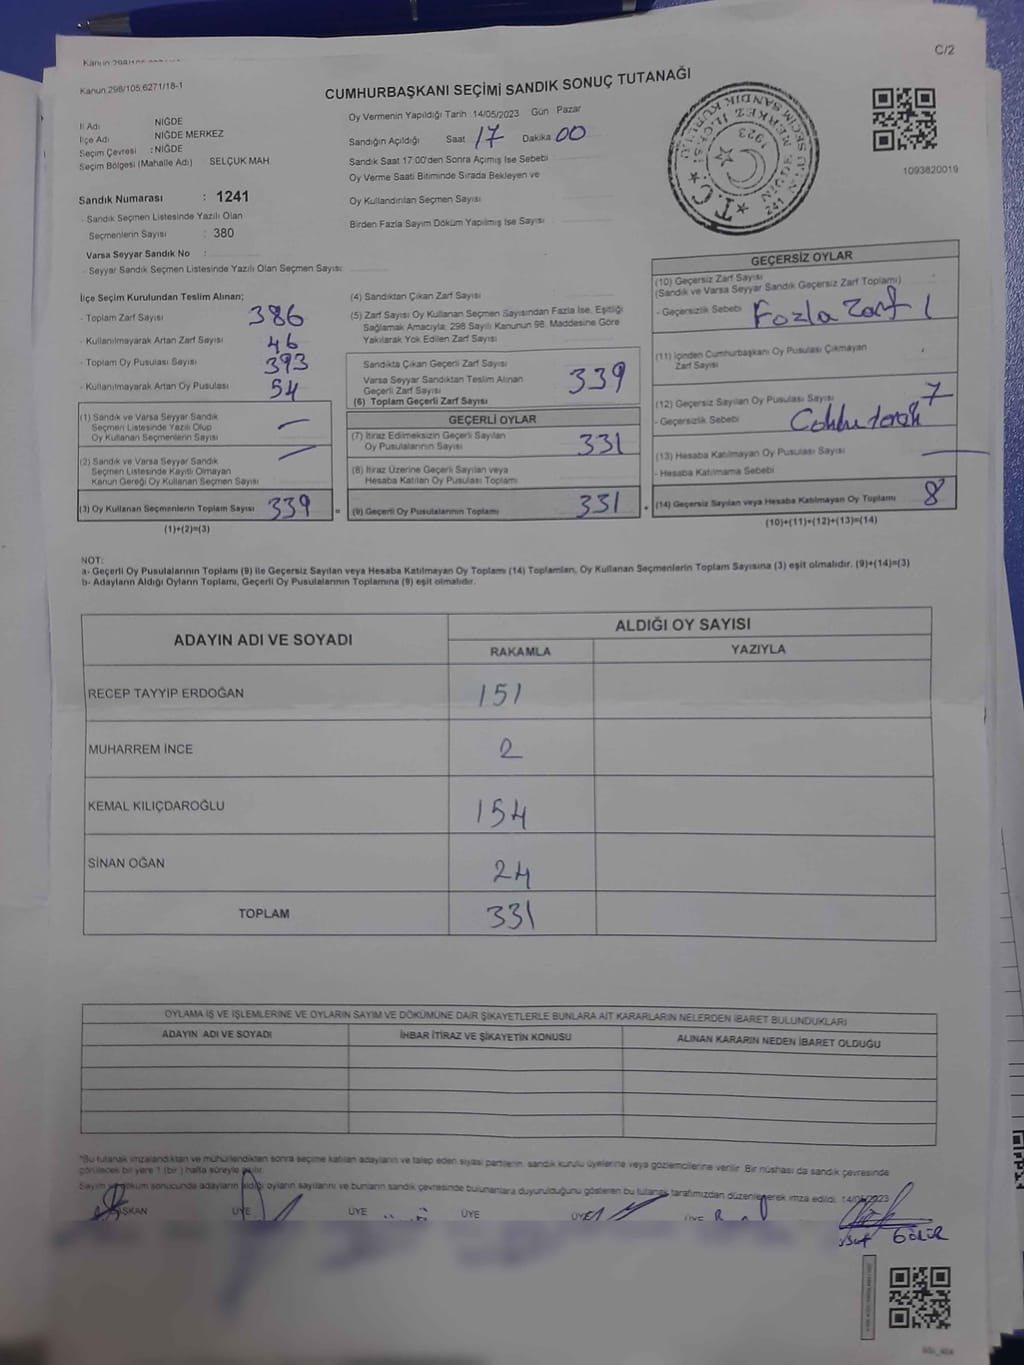 C/2
Kanun 298/105;6271/18-1
CUMHURBAŞKANI SEÇİMİ SANDIK SONUÇ TUTANAĞI
1093820019
İl Adı NİĞDE
İlçe Adı NİĞDE MERKEZ
Seçim Çevresi : NİĞDE
Seçim Bölgesi (Mahalle Adı) SELÇUK MAH
Sandık Numarası : 1241
- Sandık Seçmen Listesinde Yazılı Olan
Seçmenlerin Sayısı : 380
Varsa Seyyar Sandık No :
- Seyyar Sandık Seçmen Listesinde Yazılı Olan Seçmen Sayısı:
Oy Vermenin Yapıldığı Tarih 14/05/2023 Gün Pazar
Sandığın Açıldığı Saat 17 Dakika 00
Sandık Saat 17:00'den Sonra Açımış Ise Sebebi
Oy Verme Saati Bitiminde Sırada Bekleyen ve
Oy Kullandırılan Seçmen Sayısı
Birden Fazla Sayım Döküm Yapılmış Ise Sayısı
T.C. NİĞDE MERKEZ İLÇESİ
1923
İlçe Seçim Kurulundan Teslim Alınan;
- Toplam Zarf Sayısı 386
- Kullanılmayarak Artan Zarf Sayısı 46
- Toplam Oy Pusulası Sayısı 393
- Kullanılmayarak Artan Oy Pusulası 54
(1) Sandık ve Varsa Seyyar Sandık
Seçmen Listesinde Yazılı Olup
Oy Kullanan Seçmenlerin Sayısı —
(2) Sandık ve Varsa Seyyar Sandık
Seçmen Listesinde Kayıtlı Olmayan
Kanun Gereği Oy Kullanan Seçmen Sayısı —
(3) Oy Kullanan Seçmenlerin Toplam Sayısı 339
(1)+(2)=(3)
(4) Sandıktan Çıkan Zarf Sayısı
(5) Zarf Sayısı Oy Kullanan Seçmen Sayısından Fazla İse, Eşitliği
Sağlamak Amacıyla; 298 Sayılı Kanunun 98. Maddesine Göre
Yakılarak Yok Edilen Zarf Sayısı
Sandıkta Çıkan Geçerli Zarf Sayısı
Varsa Seyyar Sandıktan Teslim Alınan
Geçerli Zarf Sayısı
(6) Toplam Geçerli Zarf Sayısı 339
GEÇERLİ OYLAR
(7) İtiraz Edilmeksizin Geçerli Sayılan
Oy Pusulalarının Sayısı 331
(8) İtiraz Üzerine Geçerli Sayılan veya
Hesaba Katılan Oy Pusulası Toplamı
(9) Geçerli Oy Pusulalarının Toplamı 331
GEÇERSİZ OYLAR
(10) Geçersiz Zarf Sayısı
(Sandık ve Varsa Seyyar Sandık Geçersiz Zarf Toplamı)
- Geçersizlik Sebebi Fazla Zarf 1
(11) İçinden Cumhurbaşkanı Oy Pusulası Çıkmayan
Zarf Sayısı
(12) Geçersiz Sayılan Oy Pusulası Sayısı 7
- Geçersizlik Sebebi
(13) Hesaba Katılmayan Oy Pusulası Sayısı —
- Hesaba Katılmama Sebebi
(14) Geçersiz Sayılan veya Hesaba Katılmayan Oy Toplamı 8
(10)+(11)+(12)+(13)=(14)
NOT:
a- Geçerli Oy Pusulalarının Toplamı (9) ile Geçersiz Sayılan veya Hesaba Katılmayan Oy Toplamı (14) Toplamları, Oy Kullanan Seçmenlerin Toplam Sayısına (3) eşit olmalıdır. (9)+(14)=(3)
b- Adayların Aldığı Oyların Toplamı, Geçerli Oy Pusulalarının Toplamına (9) eşit olmalıdır.
ADAYIN ADI VE SOYADI ALDIĞI OY SAYISI
RAKAMLA YAZIYLA
RECEP TAYYİP ERDOĞAN 151
MUHARREM İNCE 2
KEMAL KILIÇDAROĞLU 154
SİNAN OĞAN 24
TOPLAM 331
OYLAMA İŞ VE İŞLEMLERİNE VE OYLARIN SAYIM VE DÖKÜMÜNE DAİR ŞİKAYETLERLE BUNLARA AİT KARARLARIN NELERDEN İBARET BULUNDUKLARI
ADAYIN ADI VE SOYADI İHBAR İTİRAZ VE ŞİKAYETİN KONUSU ALINAN KARARIN NEDEN İBARET OLDUĞU
*Bu tutanak imzalandıktan ve mühürlendikten sonra seçime katılan adayların ve talep eden siyasi partilerin sandık kurulu üyelerine veya gözlemcilerine verilir. Bir nüshası da sandık çevresinde
görülecek bir yere 1 (bir) hafta süreyle asılır.
Sayım ve döküm sonucunda adayların aldığı oyların sayılarını ve bunların sandık çevresinde bulunanlara duyurulduğunu gösteren bu tutanak tarafımızdan düzenlenerek imza edildi. 14/05/2023
BAŞKAN ÜYE ÜYE ÜYE ÜYE ÜYE
GÖLÜR